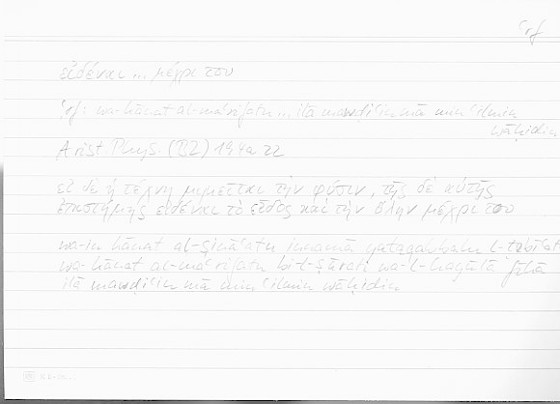 ʿrf
εἰδέναι ... μέχρι του
ʿrf: wa-kānat al-maʿrifatu ... ilā mawḍiʿin mā min ʿilmin
wāḥidin
Arist Phys. (B2) 194a22
εἰ δὲ ἡ τέχνη μιμεῖται τὴν φύσιν, τῆς δὲ αὐτῆς
ἐπιστήμης εἰδέναι τὸ εἶδος καὶ τὴν ὕλην μέχρι του
wa-in kānat al-ṣināʿatu innamā l-ṭabīʿat
wa-kānat al-maʿrifatu bi-l-ṣūrati wa-l-hayūlā
ilā mawḍiʿin mā min ʿilmin wāḥidin